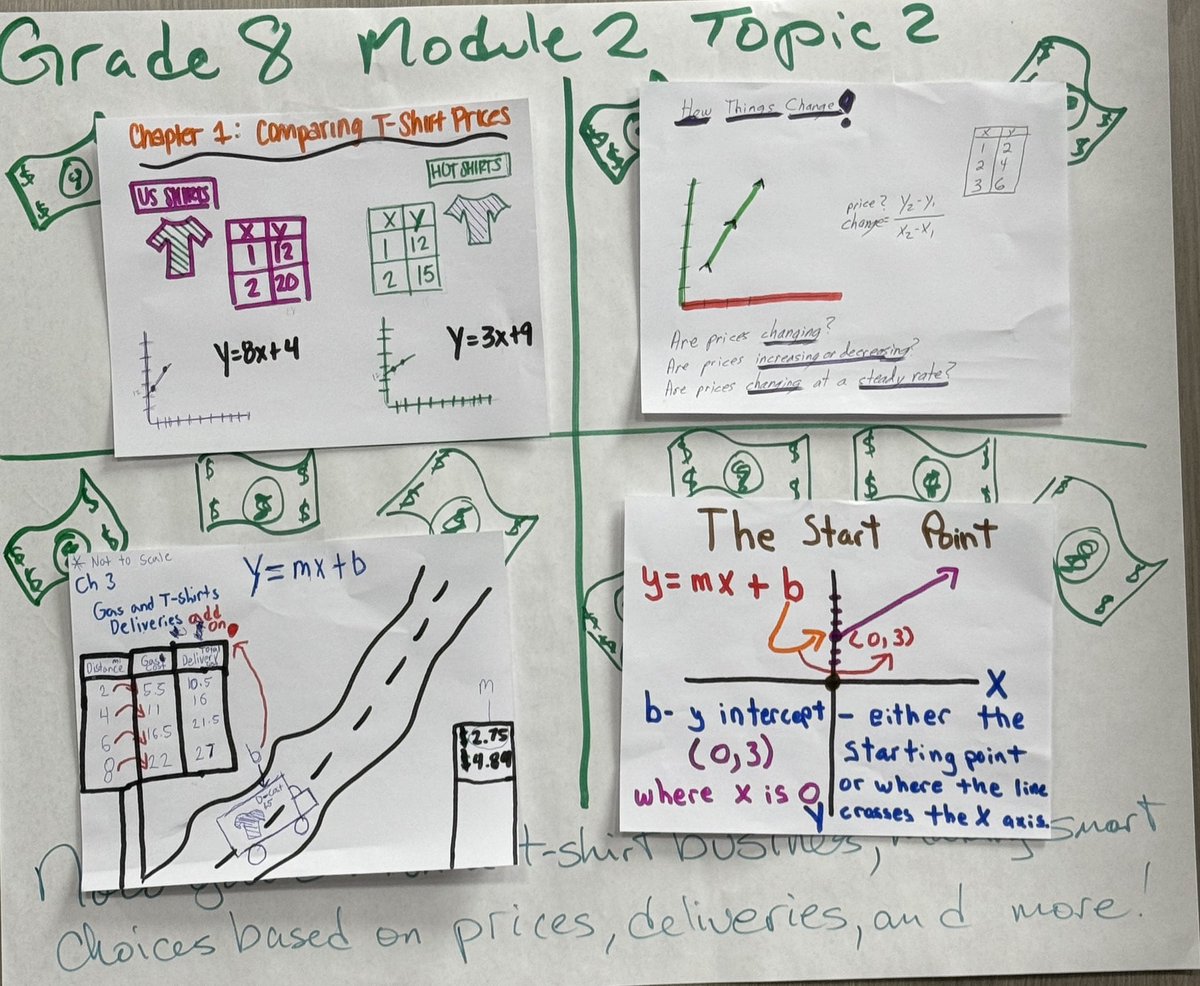 Grade 8 Module 2 Topic 2
Chapter 1: Comparing T-Shirt Prices
US SHIRTS
X Y
1 12
2 20
Y=8x+4
HOT SHIRTS
X Y
1 12
2 15
Y=3x+9
How Things Change!
X Y
1 2
2 4
3 6
price? Y2-Y1
change= X2-X1
Are prices changing?
Are prices increasing or decreasing?
Are prices changing at a steady rate?
* Not to Scale
Ch 3
Y=mx+b
Gas and T-shirts
Deliveries add on
Distance mi Gas Cost Total Delivery
2 5.5 10.5
4 11 16
6 16.5 21.5
8 22 27
b
m
$2.75
$4.89
The Start Point
y=mx+b
(0,3)
X
b- y intercept
(0,3)
where x is 0
Y
- either the
starting point
or where the line
crosses the X axis.
t-shirt business, smart
choices based on prices, deliveries, and more!